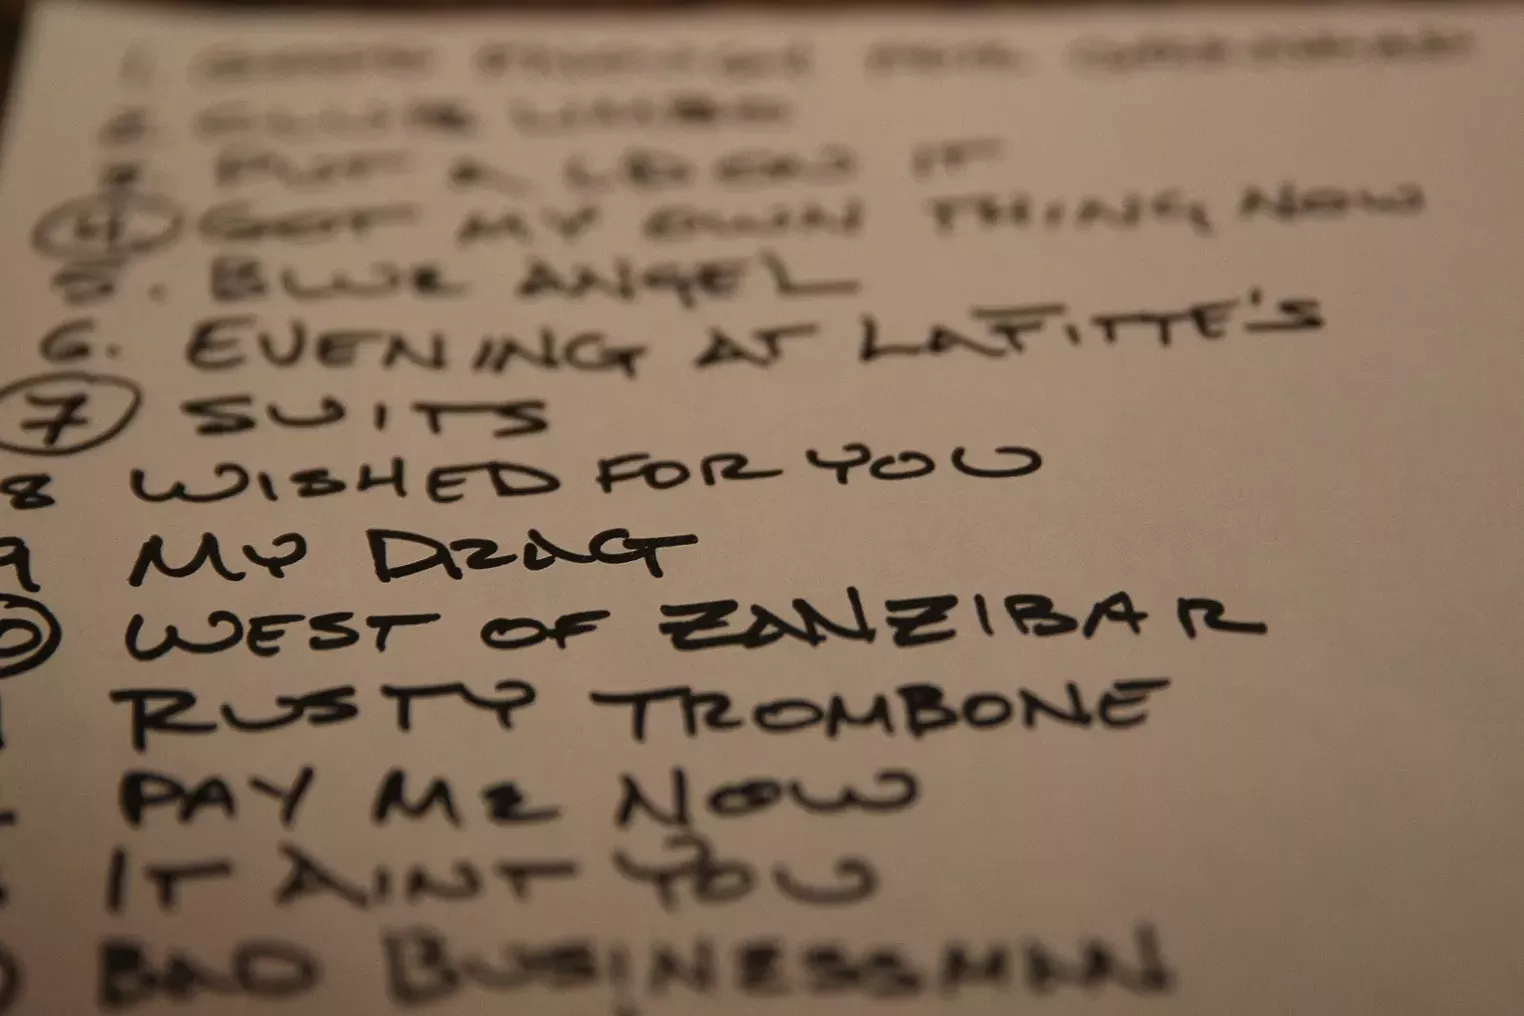 2. CLUB LIMBO
3. PUT A LID ON IT
4 GOT MY OWN THING NOW
5. BLUE ANGEL
6. EVENING AT LAFITTE'S
7 SUITS
8 WISHED FOR YOU
9 MY DRAG
0 WEST OF ZANZIBAR
RUSTY TROMBONE
PAY ME NOW
IT AINT YOU
BAD BUSINESSMAN